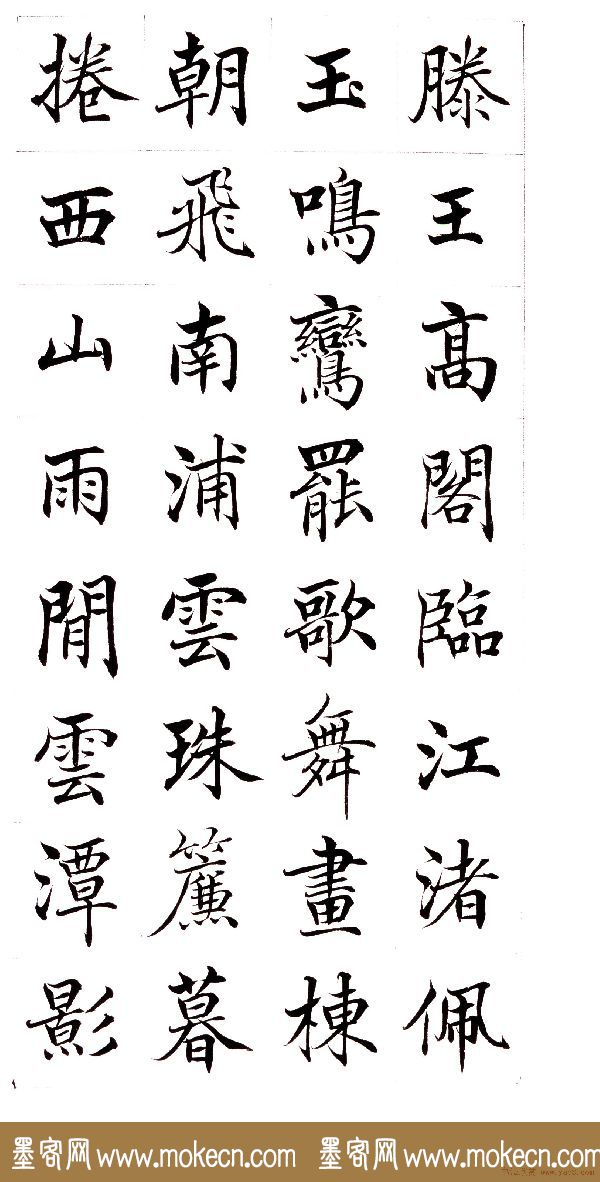 滕王高閣臨江渚佩
玉鳴鸞罷歌舞畫棟
朝飛南浦雲珠簾暮
捲西山雨閒雲潭影
墨客网 www.mokecn.com 墨客网 www.mokecn.com